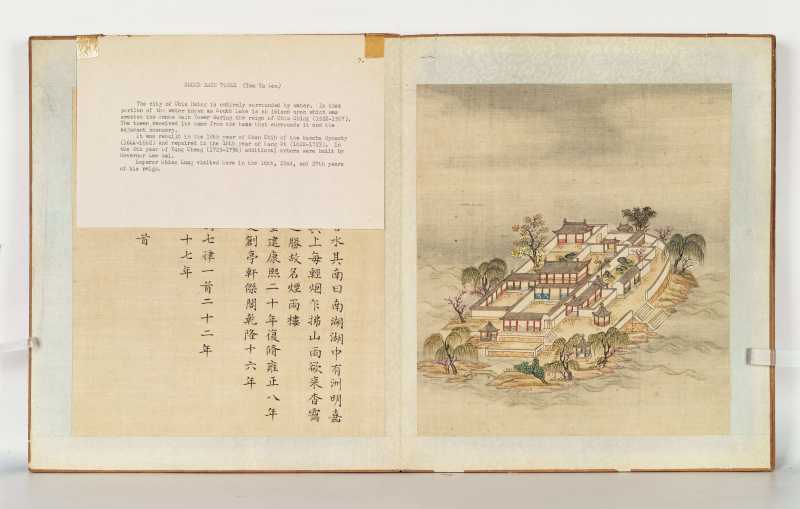 7.
SMOKE RAIN TOWER (Yen Yu Lou)
The city of Chia Hsing is entirely surrounded by water. In that
portion of the water known as South Lake is an island upon which was
erected the Smoke Rain Tower during the reign of Chia Ching
The tower received its name from the haze that surrounds it and the
adjacent scenery.
It was rebuilt in the year of Shun Chih of the Manchu dynasty
and repaired in the 20th year of Kang Hi (1662-1723). In
the 8th year of Yung Cheng (1723-1736) additional were built by
Governor Lee Wei.
Emperor Chien Lung visited here in the 16th, 22nd, and 27th years
of his reign.
水其南曰南湖湖中有洲明嘉
上每輕烟乍拂山雨欲来杳靄
勝故名煙雨樓
建康熙二十年復脩雍正八年
剏亭軒傑閣乾隆十六年
七律一首二十二年
十七年
首